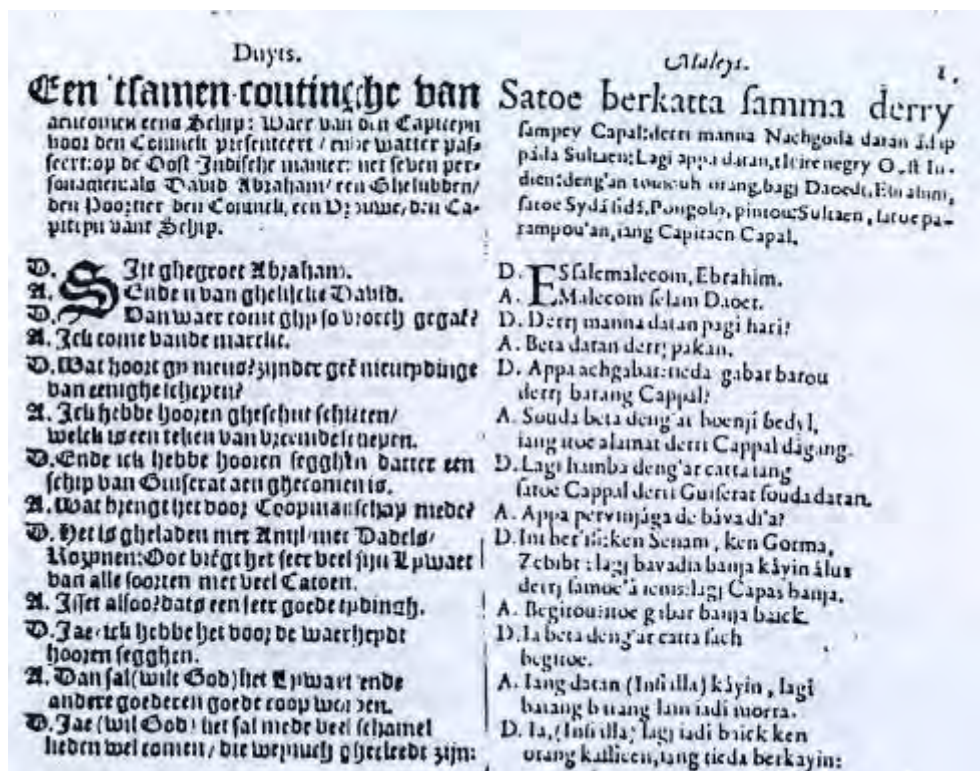 Duyts.
Een 'tsamen-coutinghe van
aencomen eens Schip: Waer van den Capiteyn
voor den Coninck presenteert / ende watter pas-
seert: op de Oost Indische manier: met seven per-
sonagien: als David Abraham / een Ghesubben /
den Poortier den Coninck, een Vrouwe, den Ca-
piteyn vant Schip.
D. SIjt ghegroet Abraham.
A. Ende u van ghelijcke David.
D. Van waer comt ghy so vroech gegaē?
A. Ick come vande marckt.
D. Wat hoort gy nieus? zijnder geē nieuwydinge
van eenighe schepen?
A. Ick hebbe hooren gheschut schieten /
welck is een teken van vreemde schepen.
D. Ende ick hebbe hooren segghen datter een
schip van Guiserat aen ghecomen is.
A. Wat brenget het voor Coopmanschap mede?
D. Het is gheladen met Anijl / met Dadels /
Rozynen: Ooc brēgt het seer veel fijn Lywaet
van alle soorten met veel Catoen.
A. Isset alsoo? dats een seer goede tydingh.
D. Jae ick hebbe het voor de waerheydt
hooren segghen.
A. Dan sal (wilt God) het Lywaet ende
andere goederen goede coop worden.
D. Jae (wil God) het sal mede veel schamel
lieden wel comen / die weynich ghecleedt zijn:
Maleys. 1.
Satoe berkatta samma derry
sampey Capal: derri manna Nachgoda datan
páda Sultaen: Lagi appa datan, negry Oost In-
dien: deng'an orang, bagi Daoedt, Ebrahim,
satoe Pongolo, pintou: Sultaen, satoe pa-
rampou'an, iang Capitaen Capal.
D. ESsalemalecom, Ebrahim.
A. Malecom selam Daoet.
D. Derrj manna datan pagi hari?
A. Beta datan derrj pakan.
D. Appa achgabar: tieda gabar barou
derrj barang Cappal?
A. Souda beta deng'ar boenji bedyl,
iang itoe alamat derri Cappal dagang.
D. Lagi hamba deng'ar catta iang
satoe Cappal derri Guiserat souda datan.
A. Appa pervinjága de bávadi'a?
D. Senam, ken Gorma,
Zebibt: lagj bavadia banja káyin álus
derrj samoe'á lagj Capas banja.
A. Begitou: itoe gabar banja baick.
D. Ia beta deng'ar catta sach
begitoe.
A. Iang datan (Insi illa) káyin, lagi
barang barang lain iadi morra.
D. Ia, (Insi illa) lagj iadi baick ken
orang kasiceen, iang tieda berkayin: